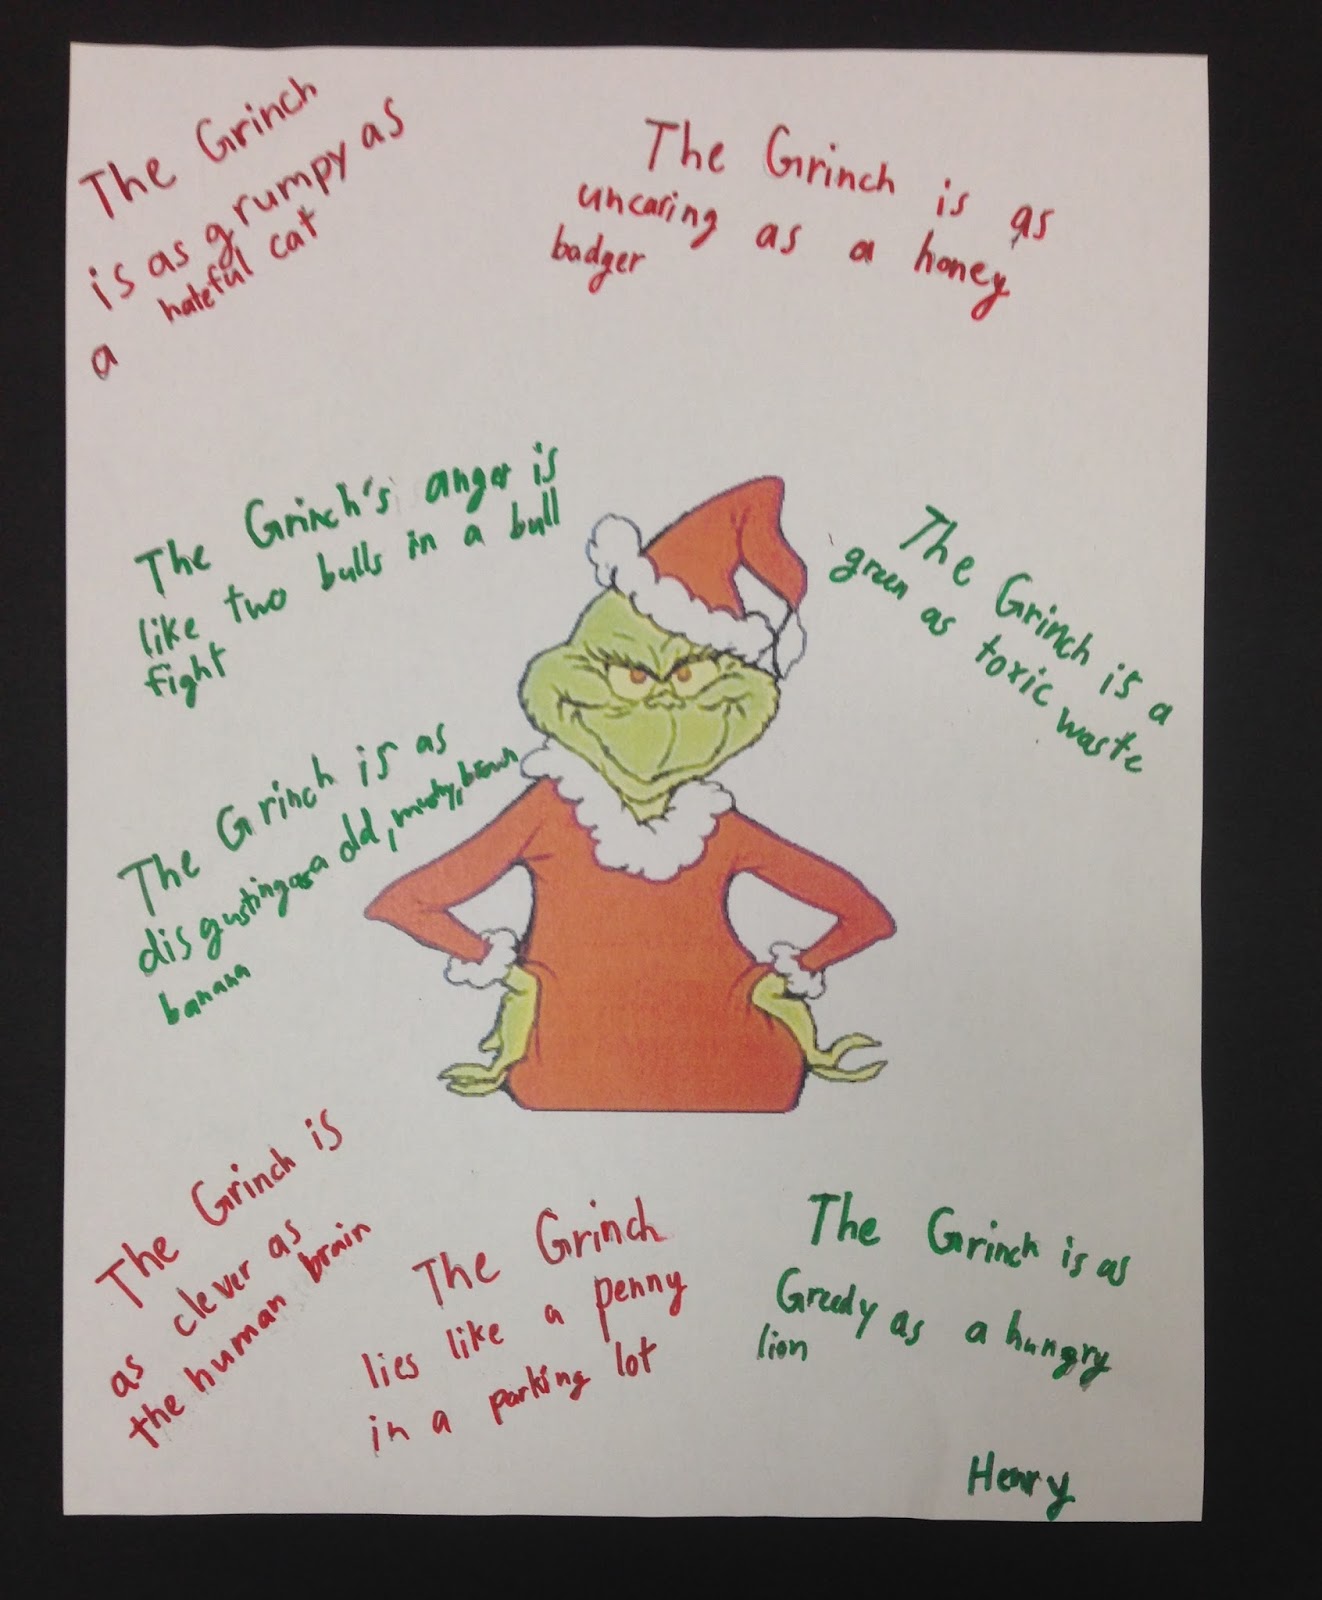 The Grinch
is as grumpy as
a hateful cat
The Grinch is as
uncaring as a honey
badger
The Grinch's anger is
like two bulls in a bull
fight
The Grinch is a
green as toxic waste
The Grinch is as
disgusting as a old, mushy, brown
banana
The Grinch is
as clever as
the human brain
The Grinch
lies like a penny
in a parking lot
The Grinch is as
Greedy as a hungry
lion
Henry